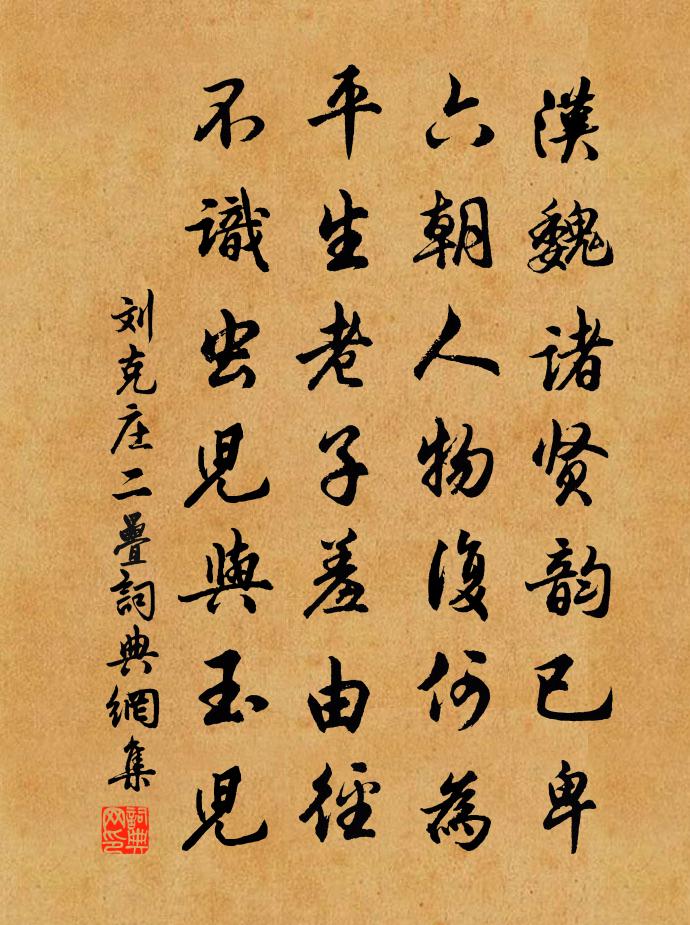 漢魏諸贤韵已卑
六朝人物復何為
平生老子羞由徑
不識虫児與玉児
刘克庄二疊詞典網集
詞典网印